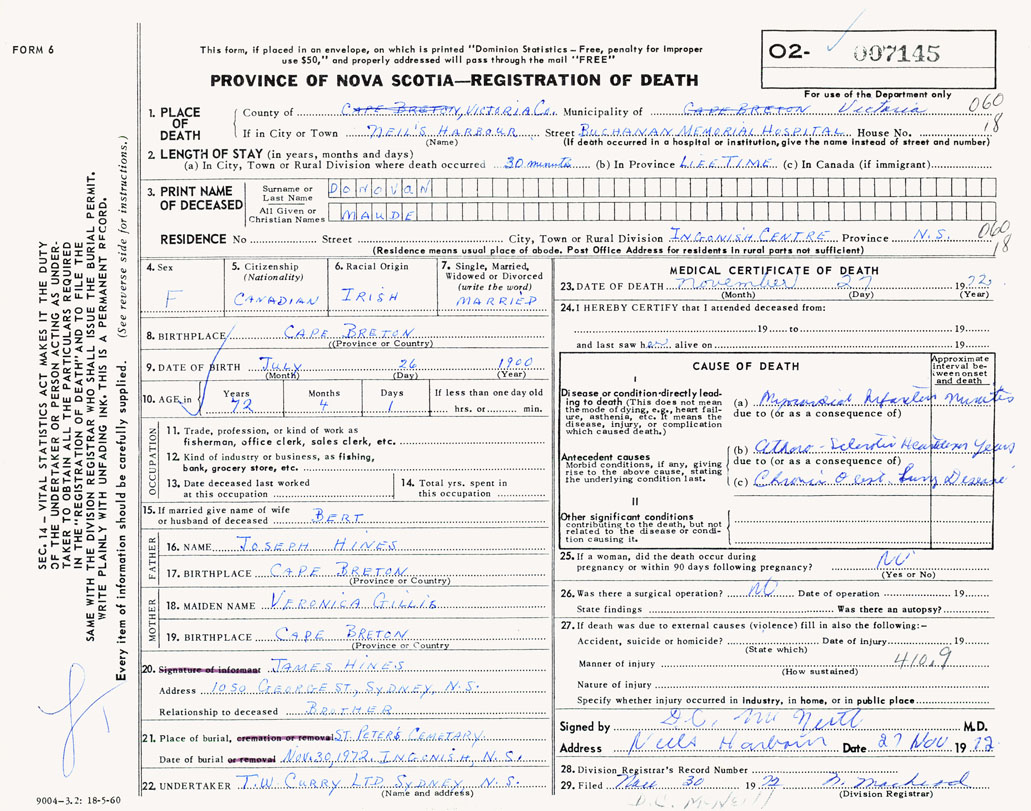 FORM 6
This form, if placed in an envelope, on which is printed "Dominion Statistics – Free, penalty for improper
use $50," and properly addressed will pass through the mail "FREE"
PROVINCE OF NOVA SCOTIA—REGISTRATION OF DEATH
O2- 007145
For use of the Department only
060
18
1. PLACE OF DEATH
County of CAPE BRETON, VICTORIA CO. Municipality of CAPE BRETON Victoria
If in City or Town NEIL'S HARBOUR Street BUCHANAN MEMORIAL HOSPITAL House No.
(Name) (If death occurred in a hospital or institution, give the name instead of street and number)
2. LENGTH OF STAY (in years, months and days)
(a) In City, Town or Rural Division where death occurred 30 minutes (b) In Province LIFE TIME (c) In Canada (if immigrant)
3. PRINT NAME OF DECEASED
Surname or Last Name DONOVAN
All Given or Christian Names MAUDE
RESIDENCE No Street City, Town or Rural Division INGONISH CENTRE Province N.S.
060
18
(Residence means usual place of abode. Post Office Address for residents in rural parts not sufficient)
4. Sex
F
5. Citizenship (Nationality)
CANADIAN
6. Racial Origin
IRISH
7. Single, Married, Widowed or Divorced (write the word)
MARRIED
8. BIRTHPLACE CAPE BRETON
((Province or Country)
9. DATE OF BIRTH July 26 1900
(Month) (Day) (Year)
10. AGE in Years Months Days If less than one day old
72 4 1 hrs. or min.
OCCUPATION
11. Trade, profession, or kind of work as
fisherman, office clerk, sales clerk, etc.
12. Kind of industry or business, as fishing,
bank, grocery store, etc.
13. Date deceased last worked
at this occupation
14. Total yrs. spent in
this occupation
15. If married give name of wife
or husband of deceased BERT
FATHER
16. NAME JOSEPH HINES
17. BIRTHPLACE CAPE BRETON
(Province or Country)
MOTHER
18. MAIDEN NAME VERONICA GILLIE
19. BIRTHPLACE CAPE BRETON
(Province or Country
20. Signature of informant JAMES HINES
Address 1050 GEORGE ST., SYDNEY, N.S.
Relationship to deceased BROTHER
21. Place of burial, cremation or removal ST. PETERS CEMETARY
Date of burial or removal NOV. 30, 1972. INGONISH, N.S.
22. UNDERTAKER T.W. CURRY LTD. SYDNEY, N.S.
(Name and address)
9004–3.2: 18-5-60
MEDICAL CERTIFICATE OF DEATH
23. DATE OF DEATH November 27 1972
(Month) (Day) (Year)
24. I HEREBY CERTIFY that I attended deceased from:
19 to 19
and last saw her alive on 19
CAUSE OF DEATH
Approximate interval between onset and death
I
Disease or condition directly leading to death (This does not mean the mode of dying, e.g., heart failure, asthenia, etc. It means the disease, injury, or complication which caused death.)
(a) Myocardial Infarction Minutes
due to (or as a consequence of)
Antecedent causes
Morbid conditions, if any, giving rise to the above cause, stating the underlying condition last.
(b) Athero-Sclerotic Heart Years
due to (or as a consequence of)
(c) Chronic Obst. Lung Disease
II
Other significant conditions
contributing to the death, but not related to the disease or condition causing it.
25. If a woman, did the death occur during
pregnancy or within 90 days following pregnancy? NO
(Yes or No)
26. Was there a surgical operation? NO Date of operation 19
State findings Was there an autopsy?
27. If death was due to external causes (violence) fill in also the following:–
Accident, suicide or homicide? Date of injury 19
(State which)
Manner of injury 410.9
(How sustained)
Nature of injury
Specify whether injury occurred in Industry, in home, or in public place
Signed by D.C. McNeill M.D.
Address Neils Harbour Date 27 Nov 1972
28. Division Registrar's Record Number
29. Filed Nov 30 1972
(Division Registrar)
D.C. McNeill
SEC. 14 – VITAL STATISTICS ACT MAKES IT THE DUTY
OF THE UNDERTAKER OR PERSON ACTING AS UNDER-
TAKER TO OBTAIN ALL THE PARTICULARS REQUIRED
IN THE "REGISTRATION OF DEATH" AND TO FILE THE
SAME WITH THE DIVISION REGISTRAR WHO SHALL ISSUE THE BURIAL PERMIT.
WRITE PLAINLY WITH UNFADING INK. THIS IS A PERMANENT RECORD.
Every item of information should be carefully supplied. (See reverse side for instructions.)